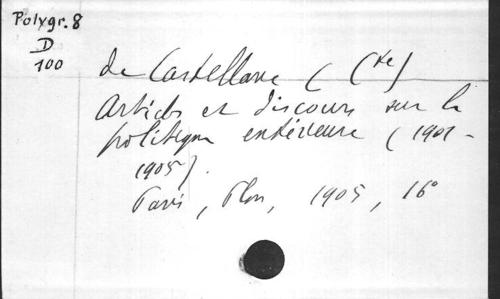 Polygr. 8
D
100
de Castellane (Cte)
Articles et discours sur la
politique extérieure (1901-
1905).
Paris, Plon, 1905, 16°